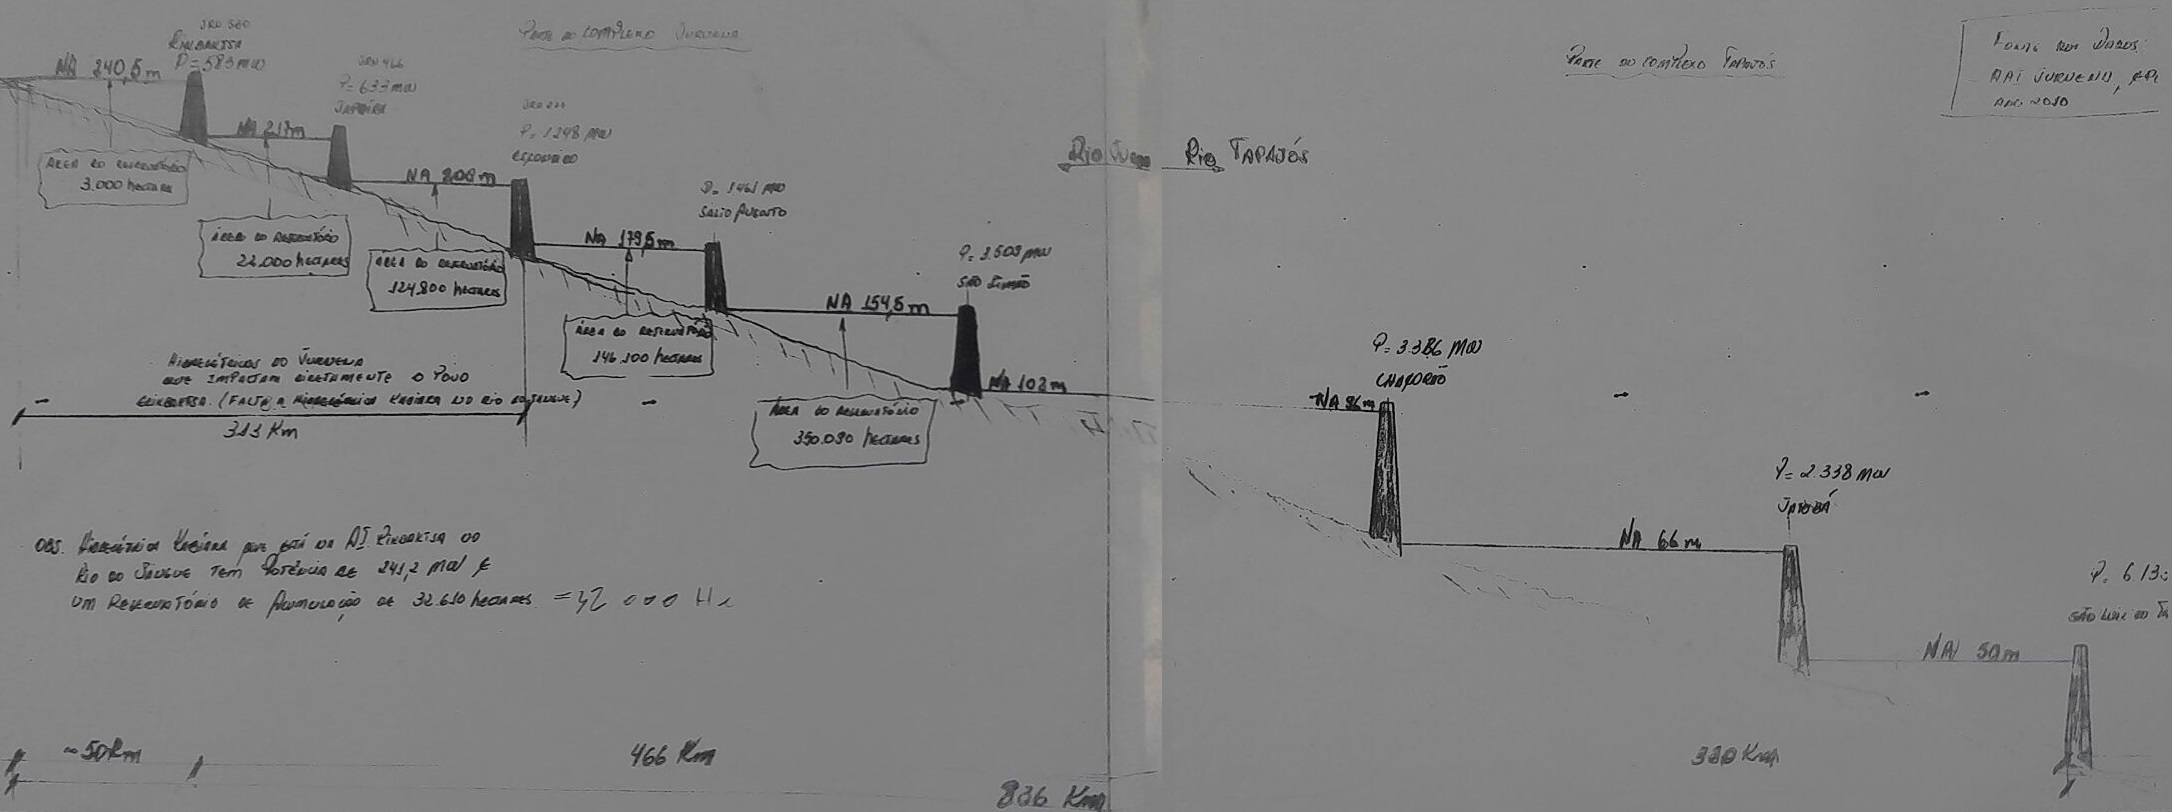 PARTE DO COMPLEXO JURUENA
PARTE DO COMPLEXO TAPAJÓS
FONTE DOS DADOS:
AAI JURUENA, EPE
ANO 2010
RIKBAKTSA
P= 583 MW
NA 240,5 m
ÁREA DO RESERVATÓRIO
3.000 hectares
P= 633 MW
NA 217 m
ÁREA DO RESERVATÓRIO
22.000 hectares
P= 1248 MW
ESCONDIDO
NA 200 m
ÁREA DO RESERVATÓRIO
124.800 hectares
P= 1461 MW
SALTO AUGUSTO
NA 179,5 m
ÁREA DO RESERVATÓRIO
146.100 hectares
P= 3.509 MW
SÃO SIMÃO
NA 154,5 m
ÁREA DO RESERVATÓRIO
350.090 hectares
NA 102 m
Rio
Rio TAPAJÓS
P= 3.336 MW
CHACORÃO
NA 96 m
P= 2.338 MW
JATOBÁ
NA 66 m
P= 6.13
SÃO LUIZ DO TA
NA 50 m
HIDRELÉTRICAS DO JURUENA
QUE IMPACTAM DIRETAMENTE O POVO
RIKBAKTSA. (FALTA A HIDRELÉTRICA KABIARA NO RIO DO SANGUE)
313 Km
OBS. HIDRELÉTRICA KABIARA QUE ESTÁ NA AI RIKBAKTSA DO
RIO DO SANGUE TEM POTÊNCIA DE 241,2 MW E
UM RESERVATÓRIO DE ACUMULAÇÃO DE 32.610 hectares =32 000 Ha
~50Km
466 Km
330 Km
836 Km